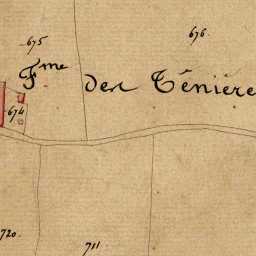 676
675
Fme des Ténière
674
720
711